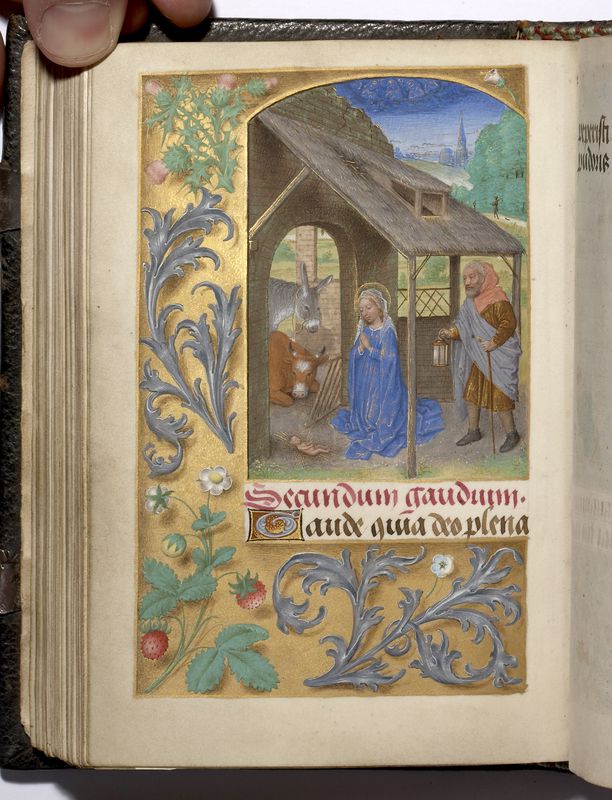 Secundum gaudium.
Gaude quia deo plena